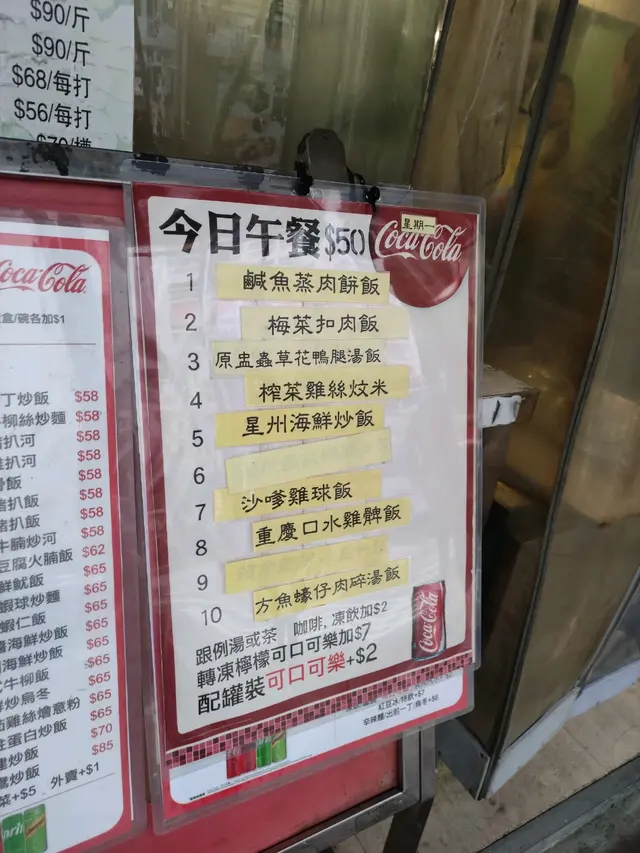 $90/斤
$90/斤
$68/每打
$56/每打
今日午餐$50
Coca-Cola
星期一
1 鹹魚蒸肉餅飯
2 梅菜扣肉飯
3 原盅蟲草花鴨腿湯飯
4 榨菜雞絲炆米
5 星州海鮮炒飯
6
7 沙嗲雞球飯
8 重慶口水雞髀飯
9
10 方魚蠔仔肉碎湯飯
跟例湯或茶 咖啡, 凍飲加$2
轉凍檸檬可口可樂加$7
配罐裝可口可樂+$2
Coca-Cola
紅豆冰/特飲+$7
Coca-Cola
盒/碗各加$1
丁炒飯 $58
柳絲炒麵 $58
扒河 $58
扒河 $58
飯 $58
扒飯 $58
扒飯 $58
牛腩炒河 $58
豆腐火腩飯 $62
鮮魷飯 $65
蝦球炒麵 $65
蝦仁飯 $65
海鮮炒飯 $65
海鮮炒飯 $65
牛柳飯 $65
炒烏冬 $65
雞絲燴意粉 $65
蛋白炒飯 $70
炒飯 $85
菜+$5 外賣+$1